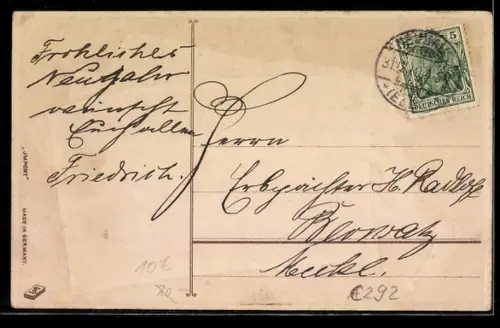 Fröhliches
Neujahr
wünscht
Euch allen
Friedrich.
Herrn
Erbpächter H. Radloff
Meckl.
5
DEUTSCHES REICH
"IMPORT"
MADE IN GERMANY.
10€
€292